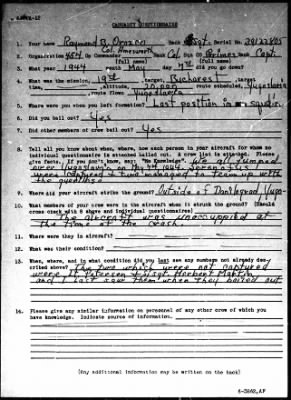 CASUALTY QUESTIONNAIRE
1. Your name Raymond B. Rank Sgt. Serial No.
2. Organization 484 Commander Col. Rank Col. Sqn CO Rank Capt.
(full name) (full name)
3. What year 1944 month May day did you go down?
4. What was the mission, target, Bucharest, target
time, altitude, 20,000 route scheduled, Yugoslavia
route flown Yugoslavia
5. Where were you when you left formation? Last position in
6. Did you bail out? Yes
7. Did other members of crew bail out? Yes
8. Tell all you know about when, where, how each person in your aircraft for whom no
individual questionnaire is attached bailed out. A crew list is attached. Please
give facts. If you don't know, say: "No Knowledge". We all jumped
over Yugoslavia on May 1944.
were captured & two managed to team up with
the guerillas
9. Where did your aircraft strike the ground? Outside of Yugo-
10. What members of your crew were in the aircraft when it struck the ground? (Should
cross check with 8 above and individual questionnaires)
The aircraft was unoccupied at
the time of the crash.
11. Where were they in aircraft?
12. What was their condition?
13. When, where, and in what condition did you last see any members not already des-
cribed above? The two which were not captured
were Lt. Petersen & S/Sgt. Herbert Martin
and I last saw them when they bailed out
14. Please give any similar information on personnel of any other crew of which you
have knowledge. Indicate source of information.
(Any additional information may be written on the back)
6-3862,AF